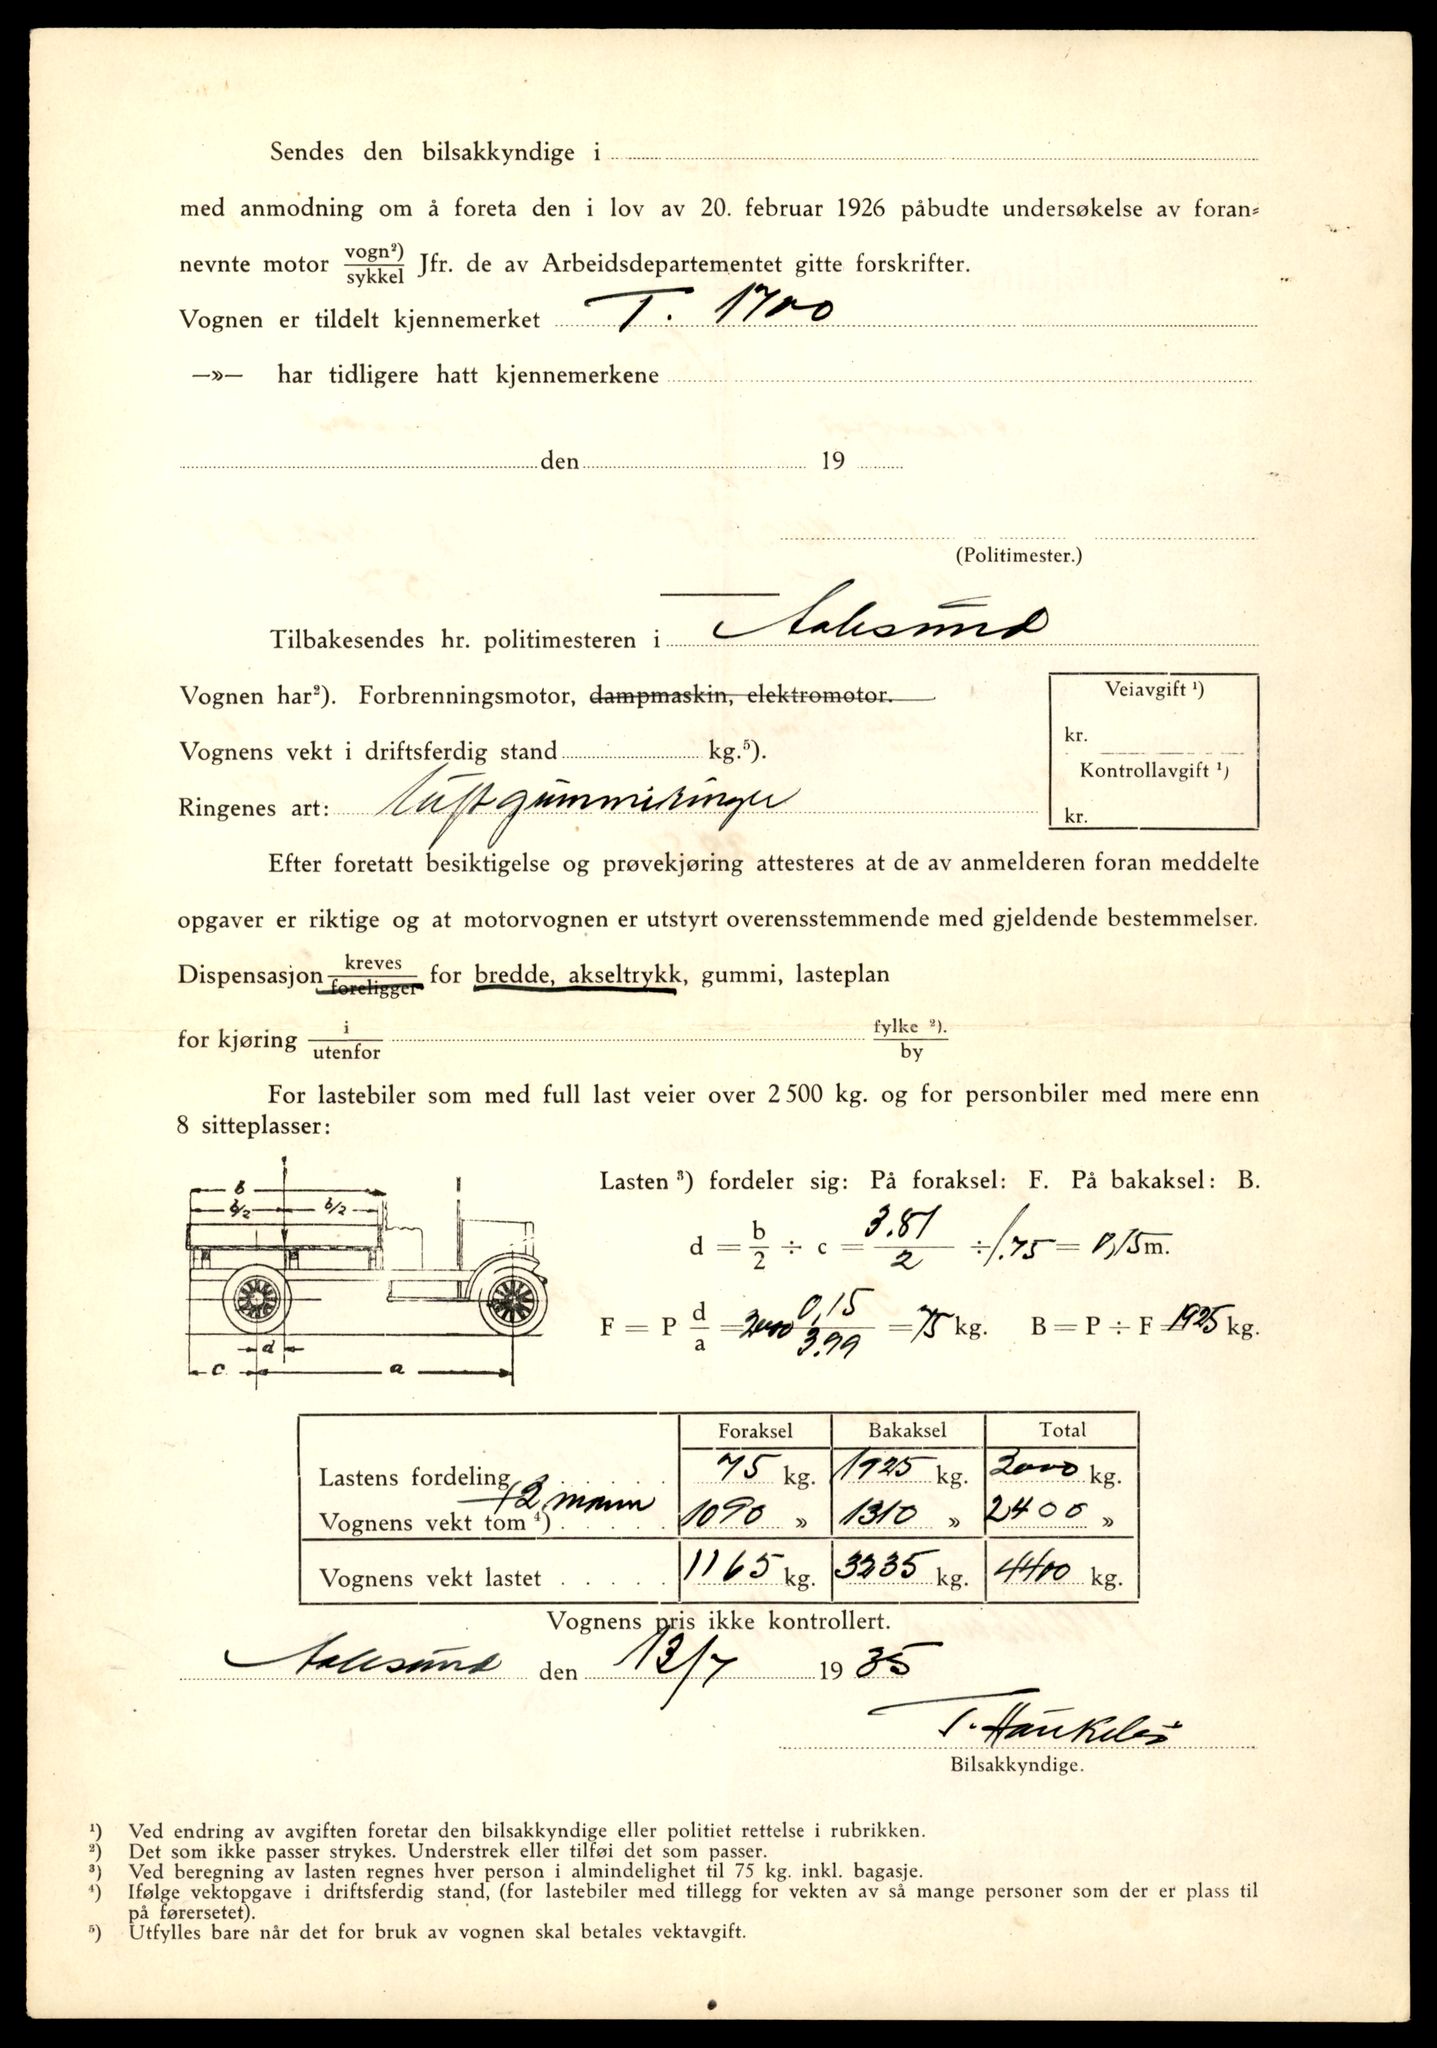 Sendes den bilsakkyndige i
med anmodning om å foreta den i lov av 20. februar 1926 påbudte undersøkelse av foran=
nevnte motor vogn²)/sykkel Jfr. de av Arbeidsdepartementet gitte forskrifter.
Vognen er tildelt kjennemerket T. 1700
—»— har tidligere hatt kjennemerkene
den 19
(Politimester.)
Tilbakesendes hr. politimesteren i Aalesund
Vognen har²). Forbrenningsmotor, dampmaskin, elektromotor.
Veiavgift ¹)
kr.
Vognens vekt i driftsferdig stand kg.⁵).
Kontrollavgift ¹)
kr.
Ringenes art: luftgummiringer
Efter foretatt besiktigelse og prøvekjøring attesteres at de av anmelderen foran meddelte
opgaver er riktige og at motorvognen er utstyrt overensstemmende med gjeldende bestemmelser.
Dispensasjon kreves/foreligger for bredde, akseltrykk, gummi, lasteplan
for kjøring i/utenfor fylke ²)./by
For lastebiler som med full last veier over 2 500 kg. og for personbiler med mere enn
8 sitteplasser:
b
b/2 b/2
d
c a
Lasten ³) fordeler sig: På foraksel: F. På bakaksel: B.
d = b/2 ÷ c = 3.81/2 ÷ 1.75 = 0,15 m.
F = P d/a = 2000 0,15/3.99 = 75 kg. B = P ÷ F 1925 kg.
Foraksel Bakaksel Total
Lastens fordeling . . . . . 75 kg. 1925 kg. 2000 kg.
+ 2 mann
Vognens vekt tom ⁴) . . . . . 1090 » 1310 » 2400 »
Vognens vekt lastet . . . . . 1165 kg. 3235 kg. 4400 kg.
Vognens pris ikke kontrollert.
Aalesund den 13/7 19 35
Bilsakkyndige.
¹) Ved endring av avgiften foretar den bilsakkyndige eller politiet rettelse i rubrikken.
²) Det som ikke passer strykes. Understrek eller tilføi det som passer.
³) Ved beregning av lasten regnes hver person i almindelighet til 75 kg. inkl. bagasje.
⁴) Ifølge vektopgave i driftsferdig stand, (for lastebiler med tillegg for vekten av så mange personer som der er plass til
på førersetet).
⁵) Utfylles bare når det for bruk av vognen skal betales vektavgift.